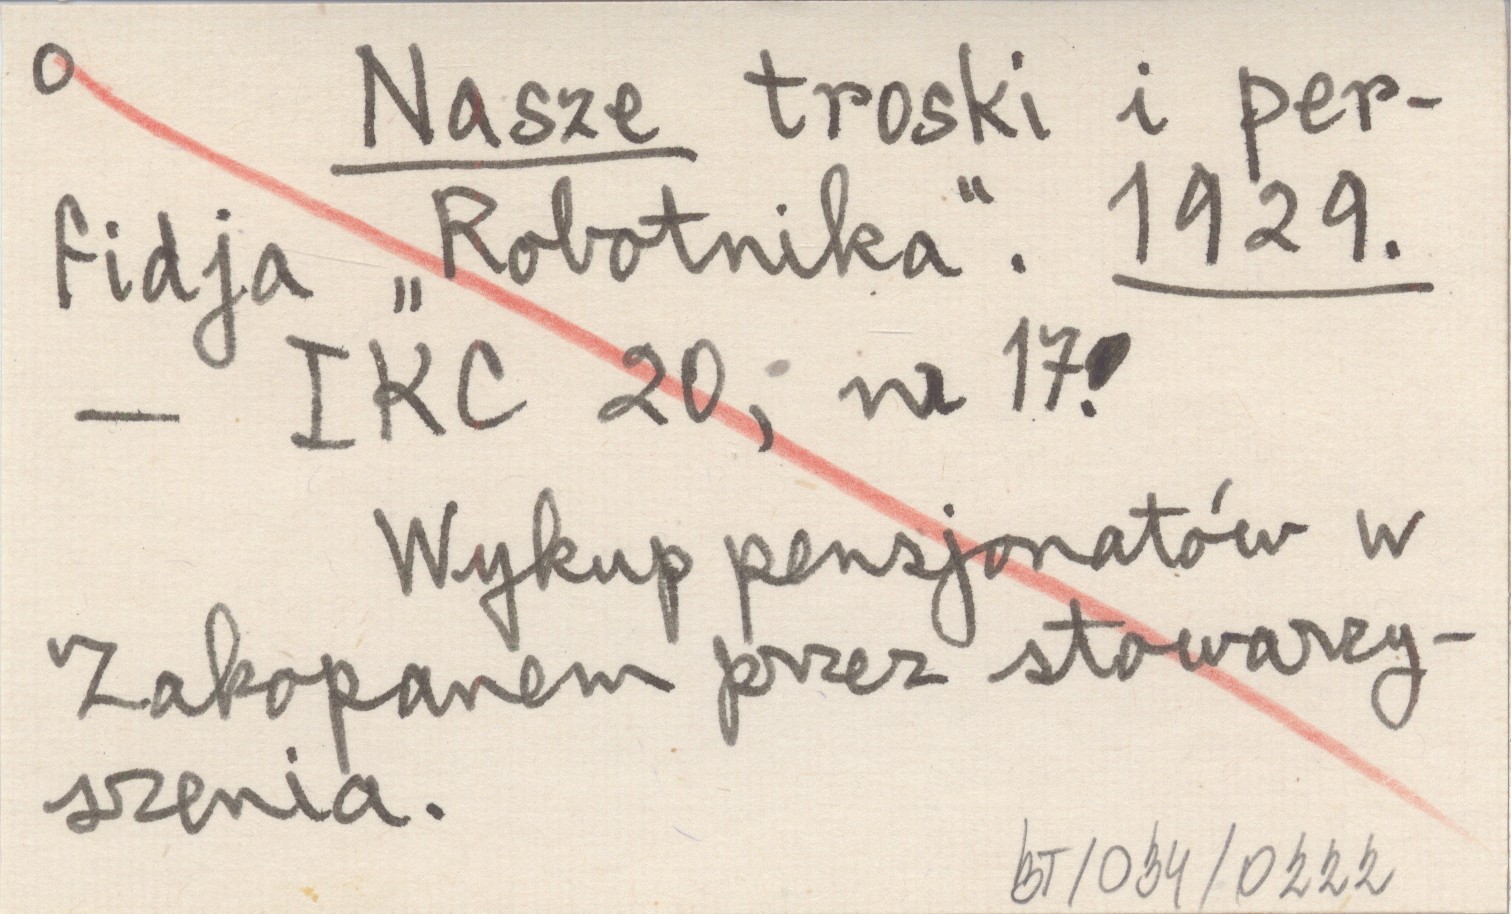 o Nasze troski i per-
fidja „Robotnika“. 1929.
— IKC 20, nr 17?
Wykup pensjonatów w
Zakopanem przez stowarzy-
szenia.
BT/034/0222